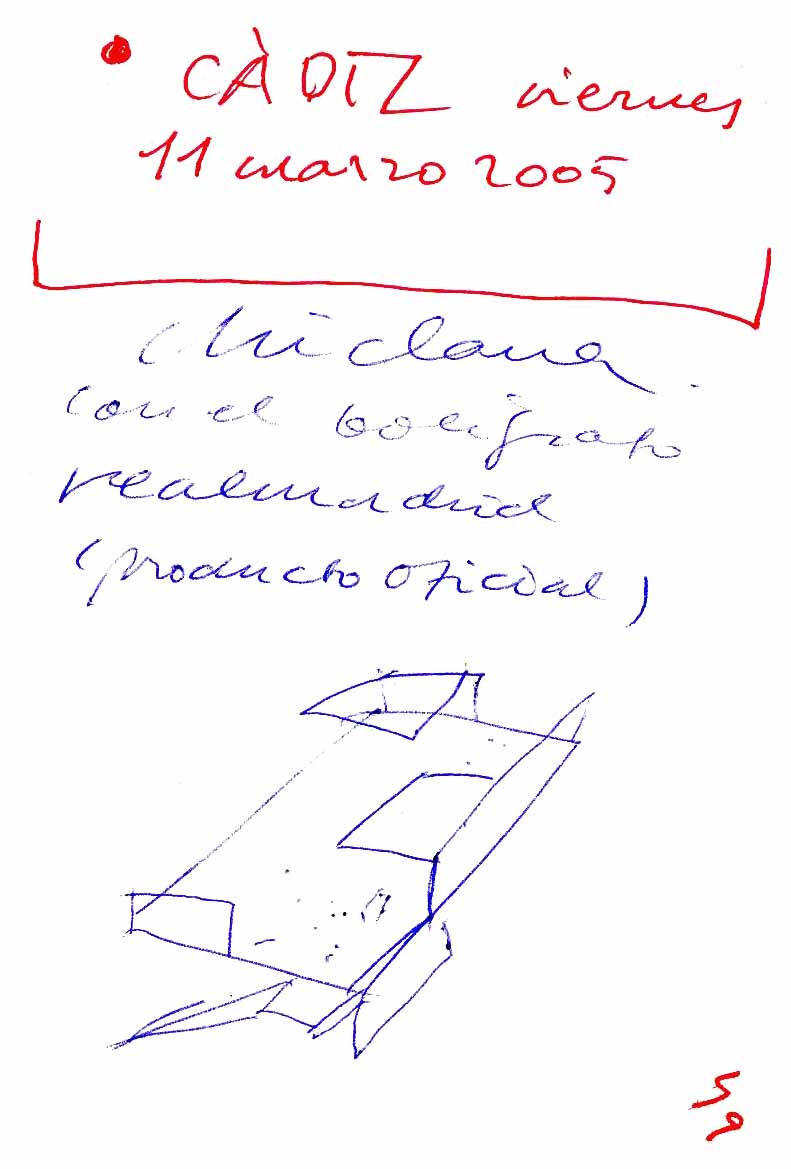 • CÀDIZ viernes
11 marzo 2005
chiclana.
con el boligrafo
realmadrid
(producto oficial)
59